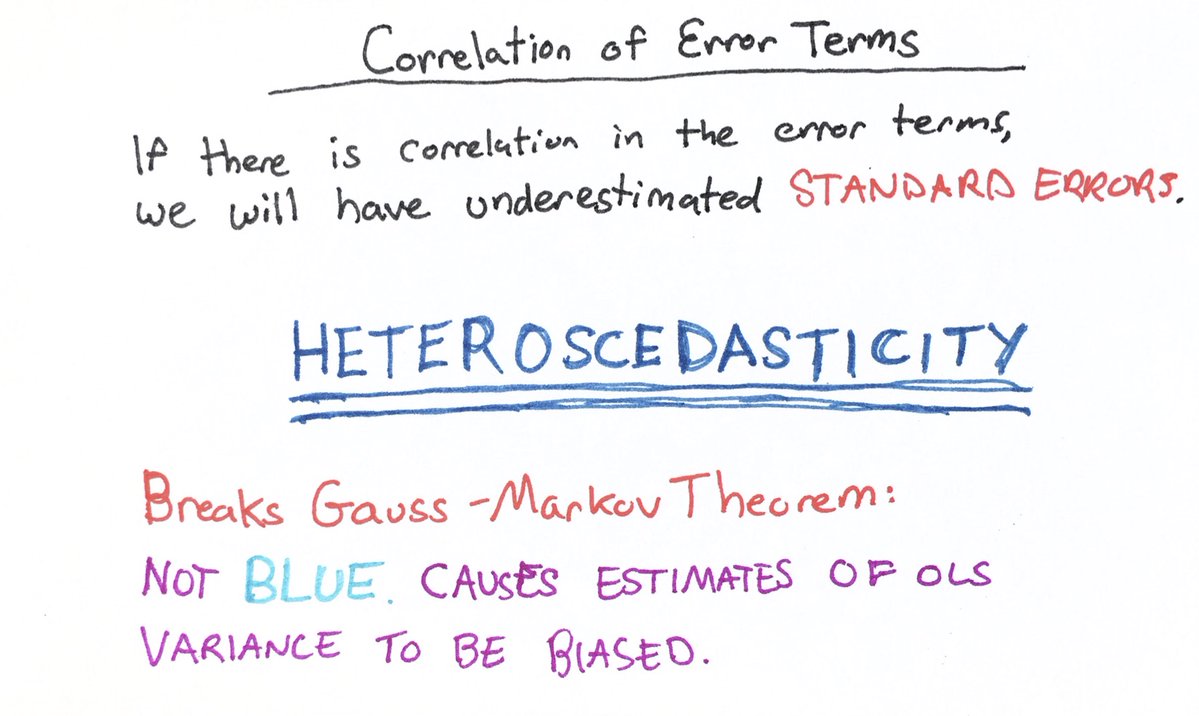 Correlation of Error Terms
If there is correlation in the error terms,
we will have underestimated STANDARD ERRORS.
HETEROSCEDASTICITY
Breaks Gauss-Markov Theorem:
NOT BLUE. CAUSES ESTIMATES OF OLS
VARIANCE TO BE BIASED.